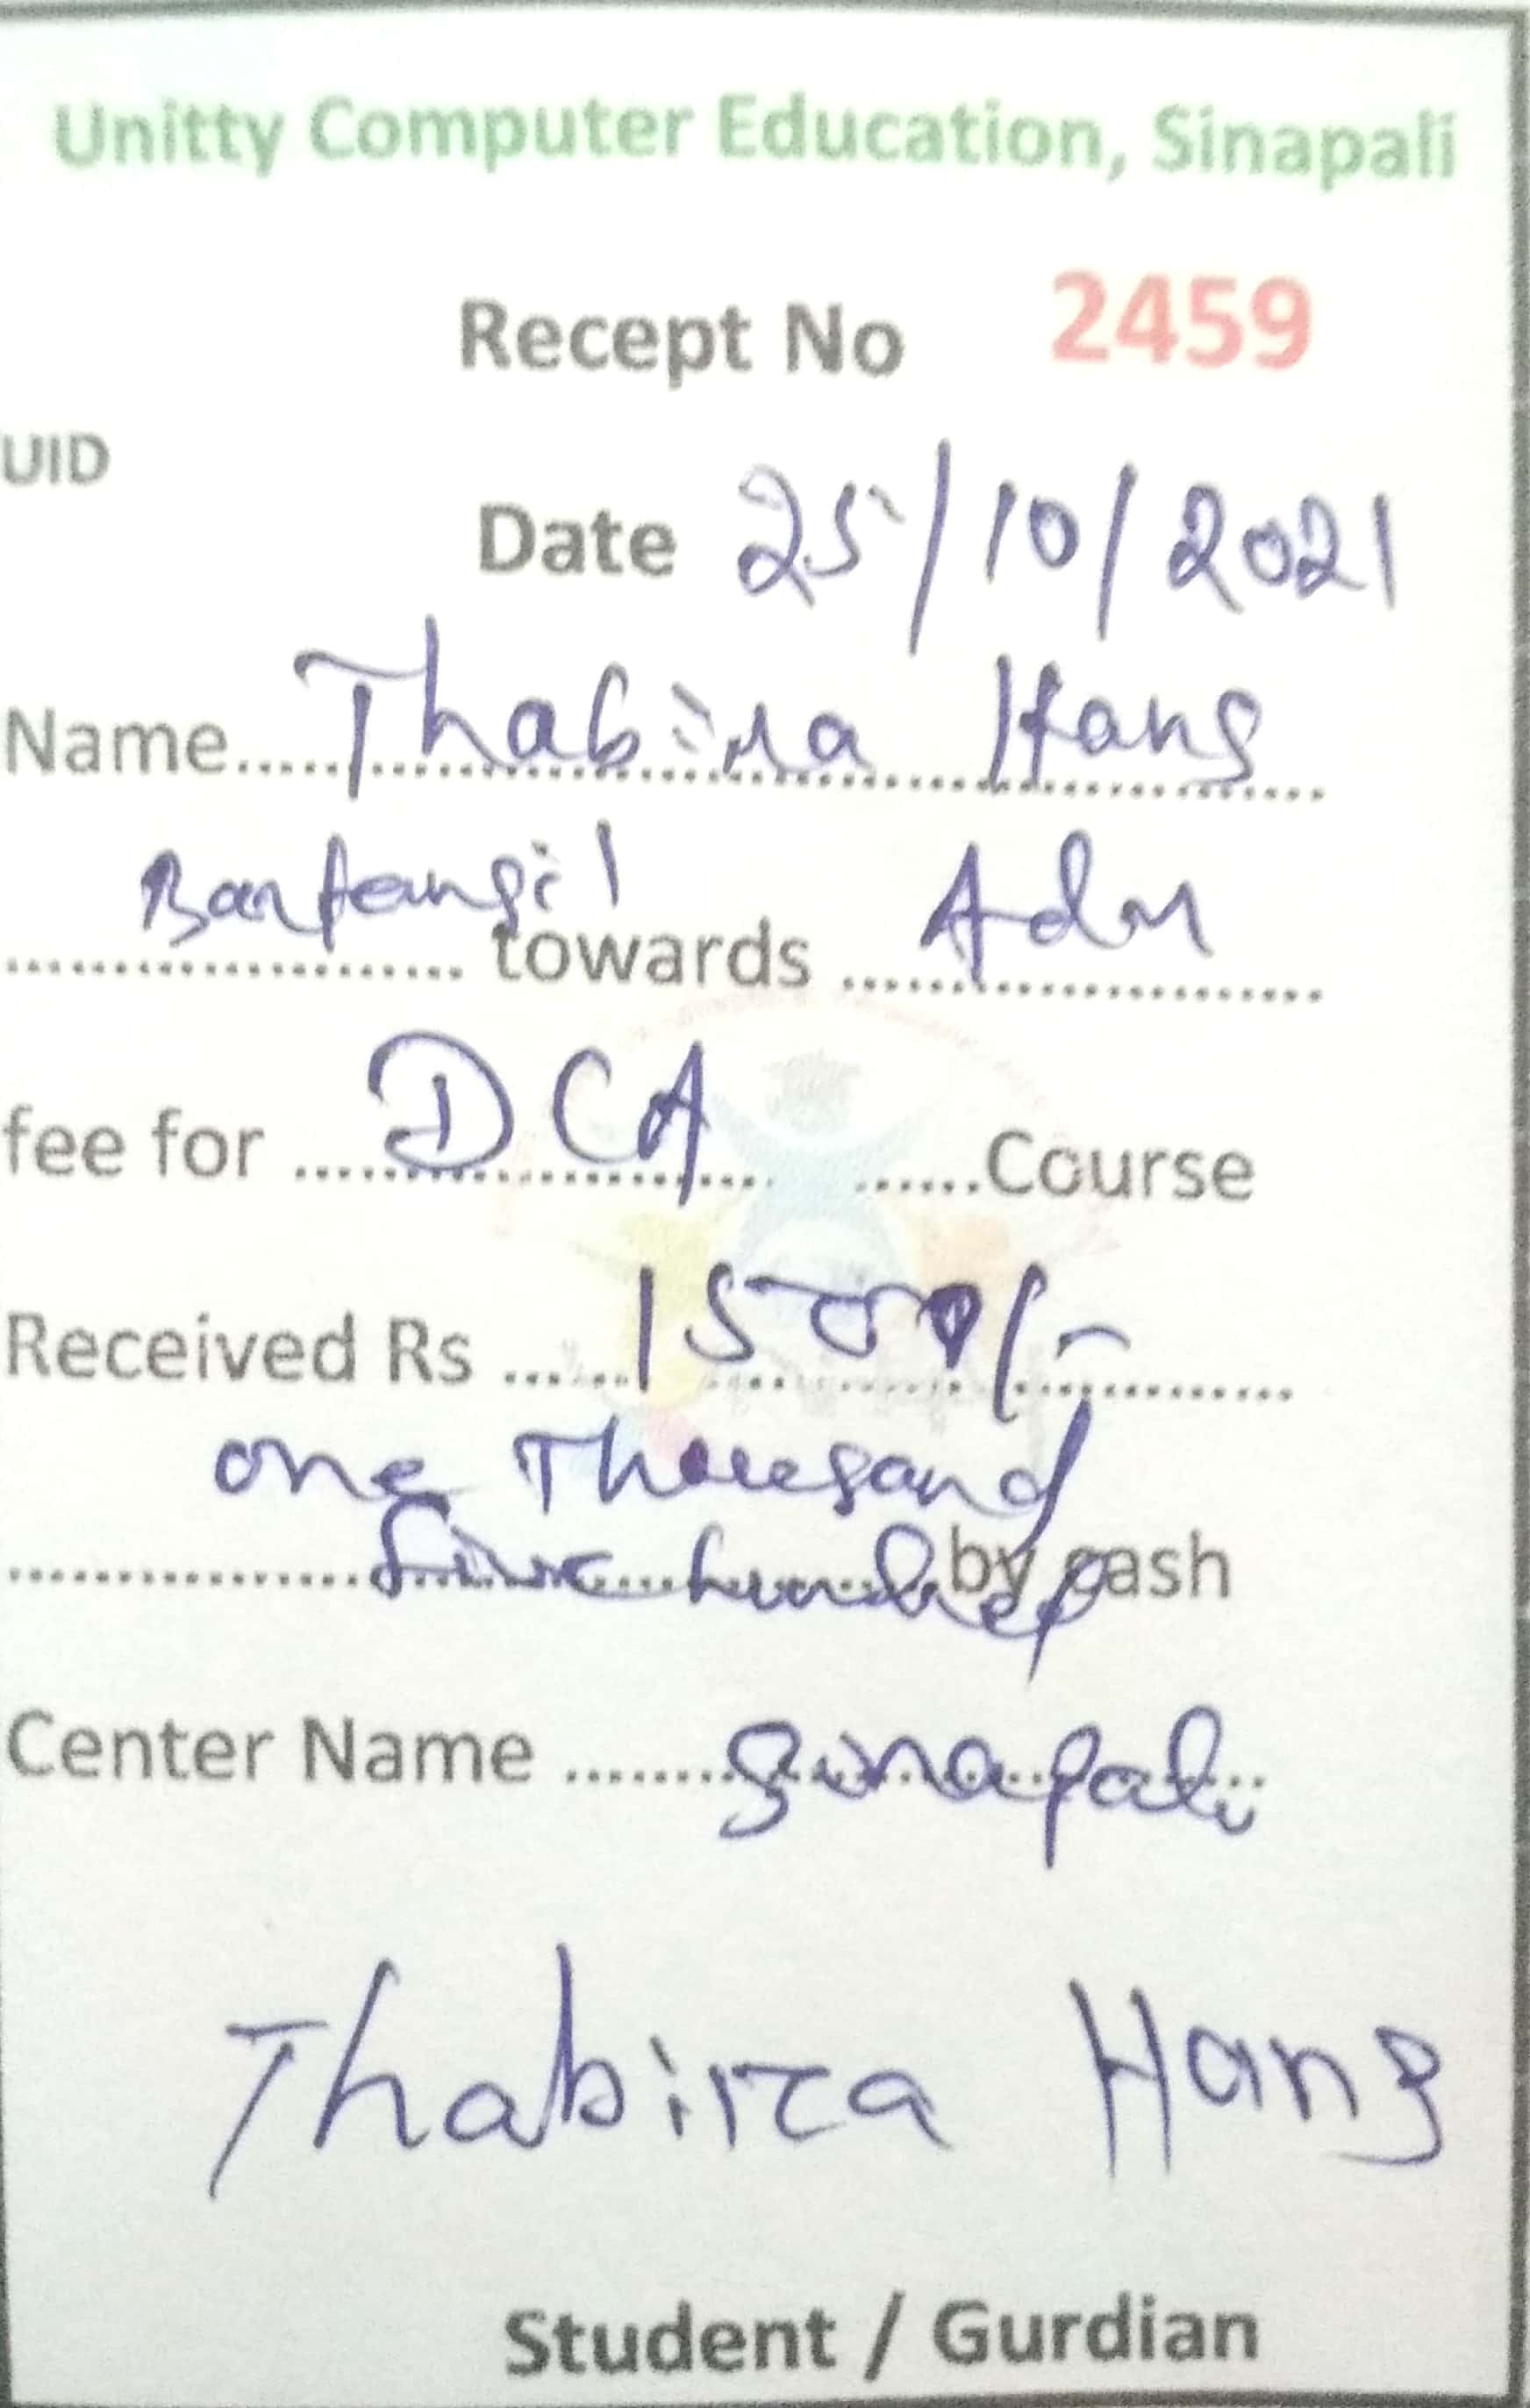 Unitty Computer Education, Sinapali
Recept No 2459
UID
Date 25/10/2021
Name.....Thabira Hang
towards Adm
fee for ....DCA.... ......Course
Received Rs ......1500/-
one Thousand
five hundred by cash
Center Name ........Sinapali
Thabira Hang
Student / Gurdian